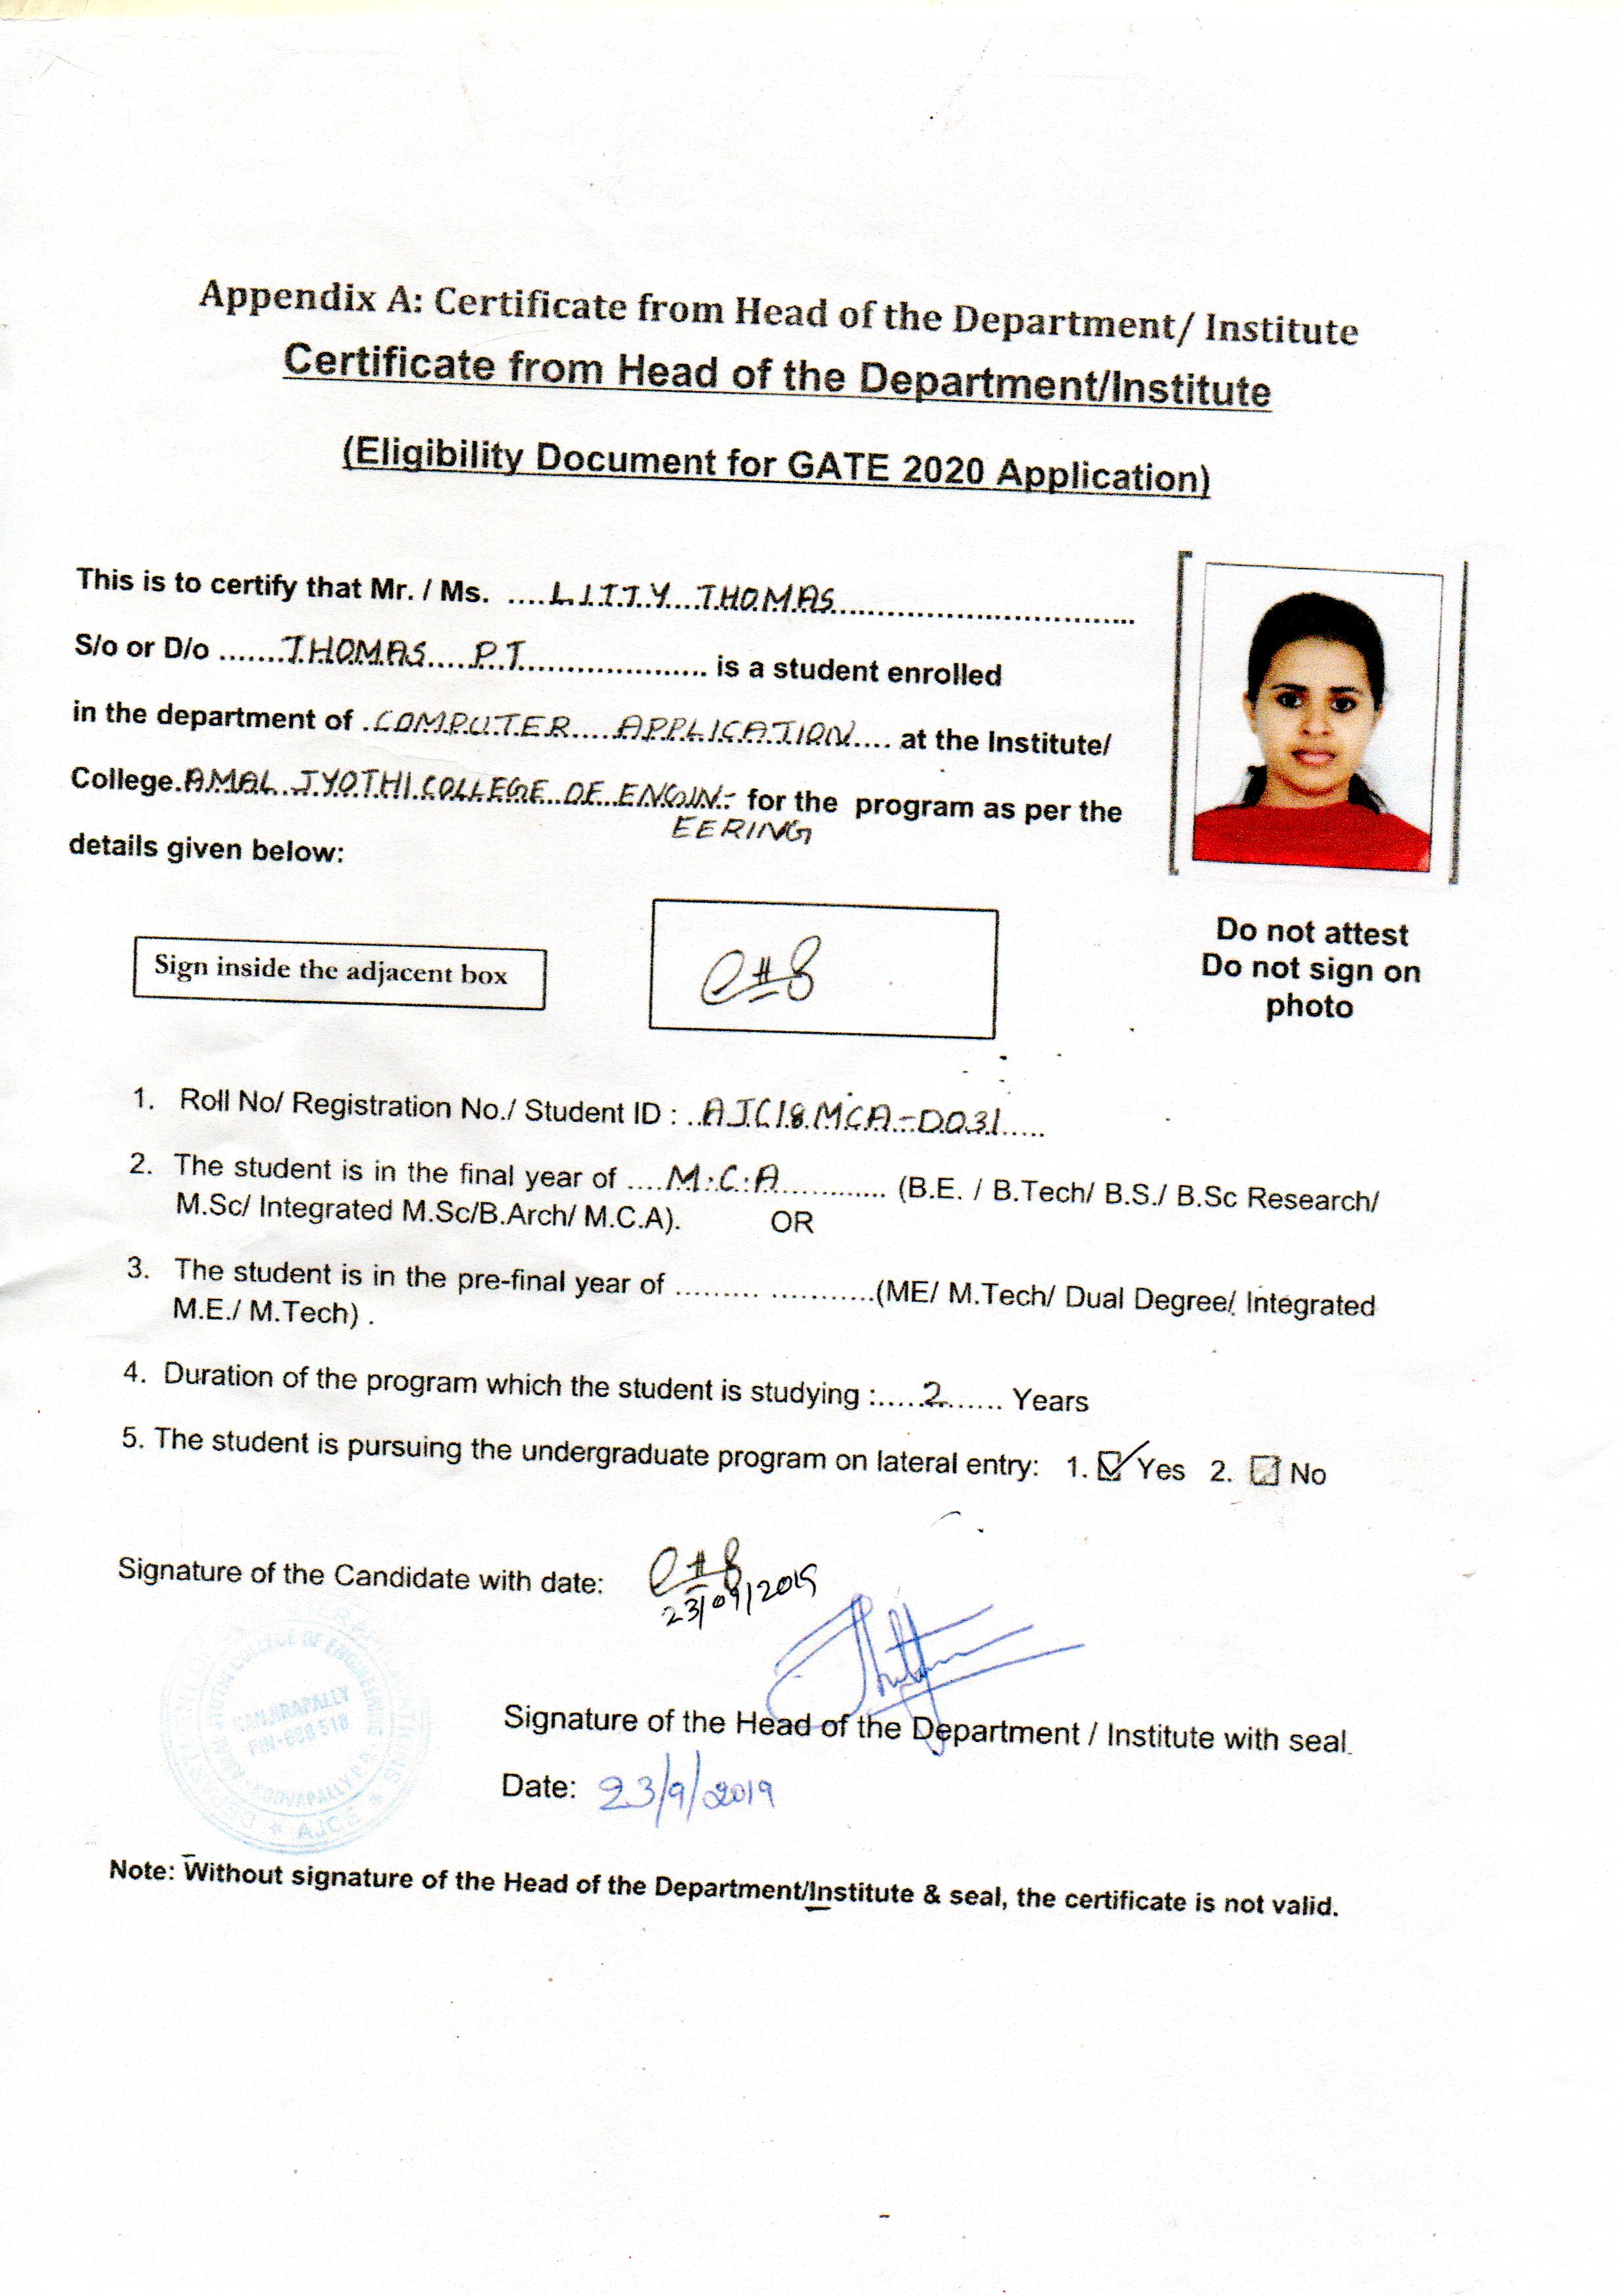 Appendix A: Certificate from Head of the Department/ Institute
Certificate from Head of the Department/Institute
(Eligibility Document for GATE 2020 Application)
This is to certify that Mr. / Ms. ....LITTY THOMAS....
S/o or D/o .......THOMAS PT....... is a student enrolled
in the department of .COMPUTER APPLICATION.... at the Institute/
College.AMAL JYOTHI COLLEGE OF ENGIN- for the program as per the
EERING
details given below:
Do not attest
Do not sign on
photo
Sign inside the adjacent box
1. Roll No/ Registration No./ Student ID : ..AJC18MCA-D031.....
2. The student is in the final year of ....M.C.A............ (B.E. / B.Tech/ B.S./ B.Sc Research/
M.Sc/ Integrated M.Sc/B.Arch/ M.C.A). OR
3. The student is in the pre-final year of ......... ...........(ME/ M.Tech/ Dual Degree/ Integrated
M.E./ M.Tech) .
4. Duration of the program which the student is studying :.....2....... Years
5. The student is pursuing the undergraduate program on lateral entry: 1. Yes 2. No
Signature of the Candidate with date:
23/09/2019
Signature of the Head of the Department / Institute with seal
Date: 23/9/2019
AMAL JYOTHI COLLEGE OF ENGINEERING
KANJIRAPALLY
PIN-686 518
KOOVAPALLY P.O.
AJCE
Note: Without signature of the Head of the Department/Institute & seal, the certificate is not valid.